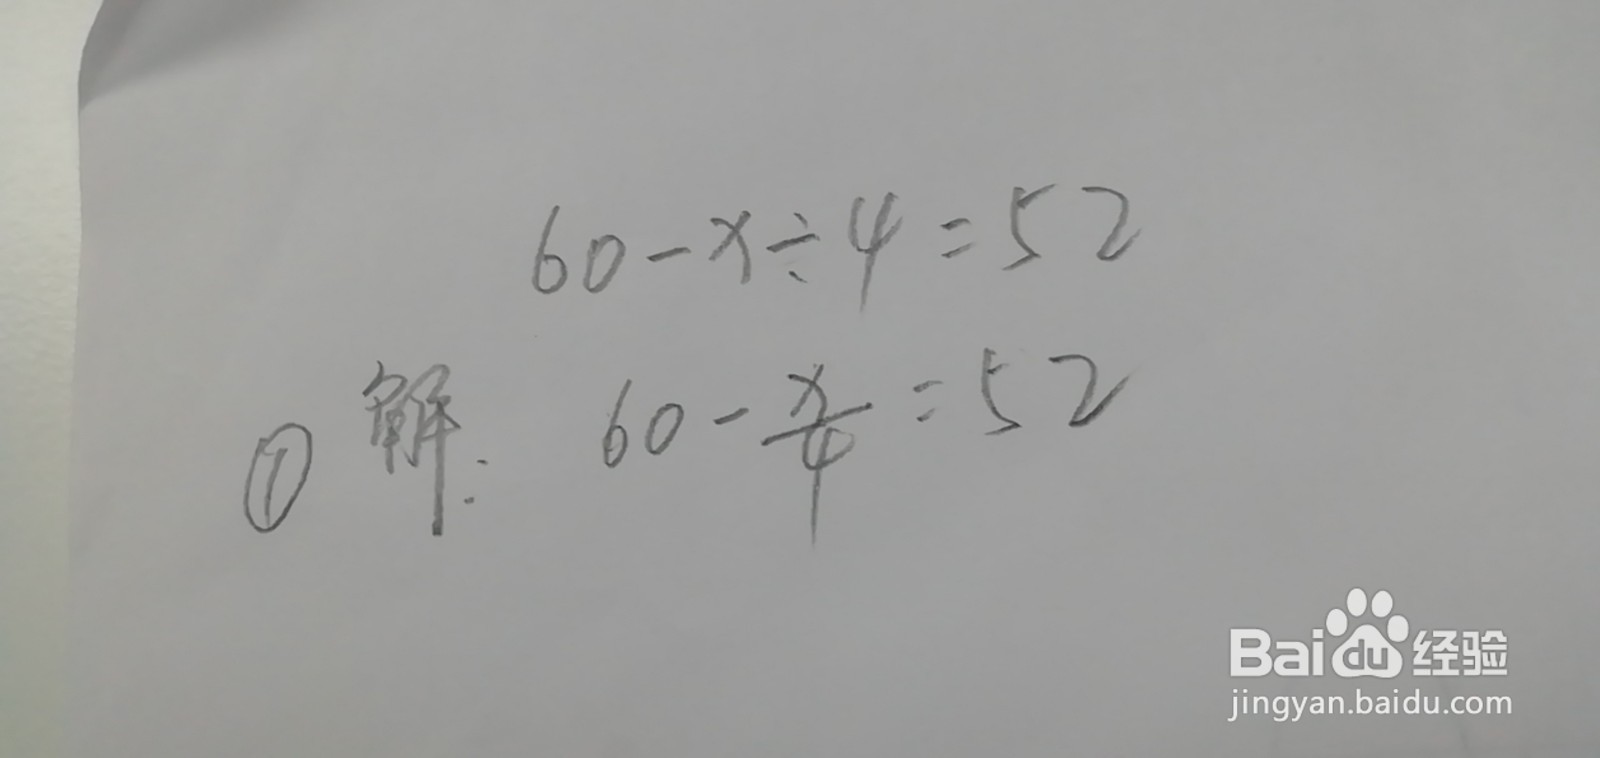 60-x÷4=52
① 解: 60-x/4=52
Baidu经验
jingyan.baidu.com